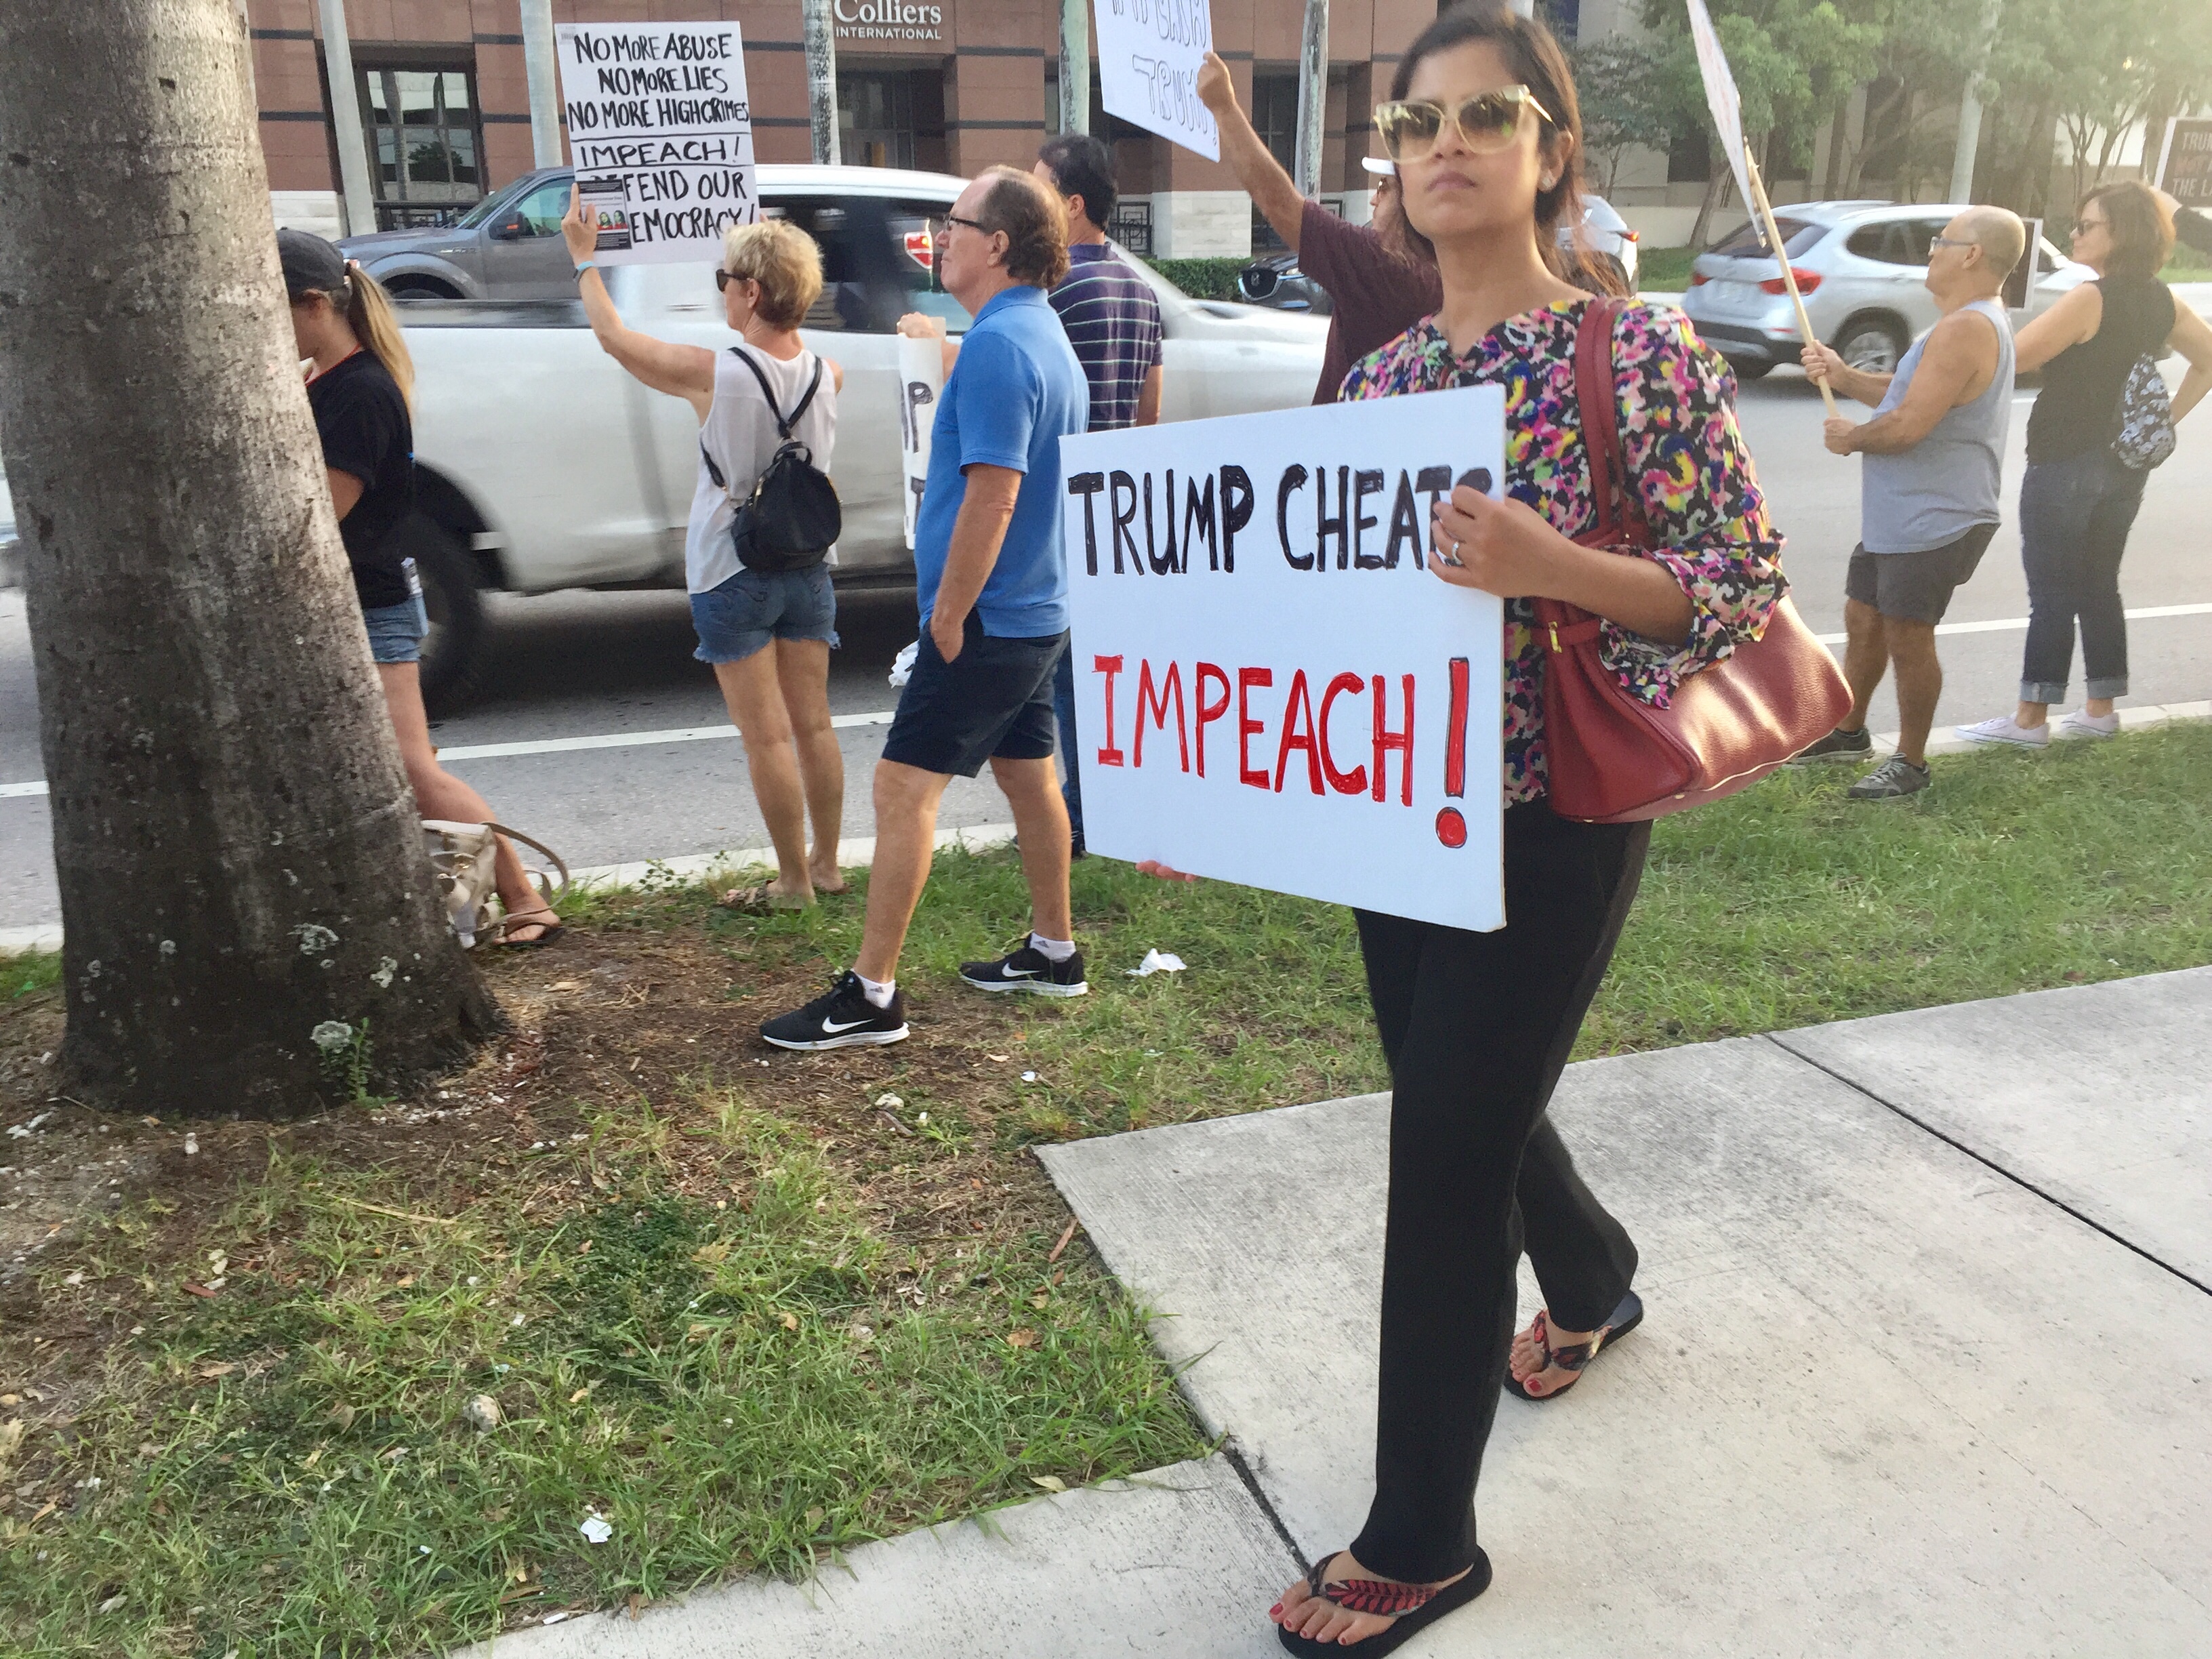 Colliers
INTERNATIONAL
NO MORE ABUSE
NO MORE LIES
NO MORE HIGHCRIMES
IMPEACH!
FEND OUR
EMOCRACY!
TRUMP CHEATS
IMPEACH!